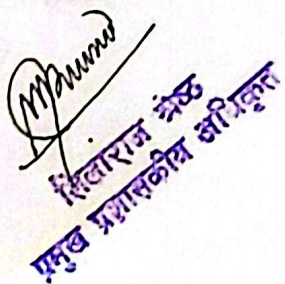 सिताराम श्रेष्ठ
प्रमुख प्रशासकीय अधिकृत